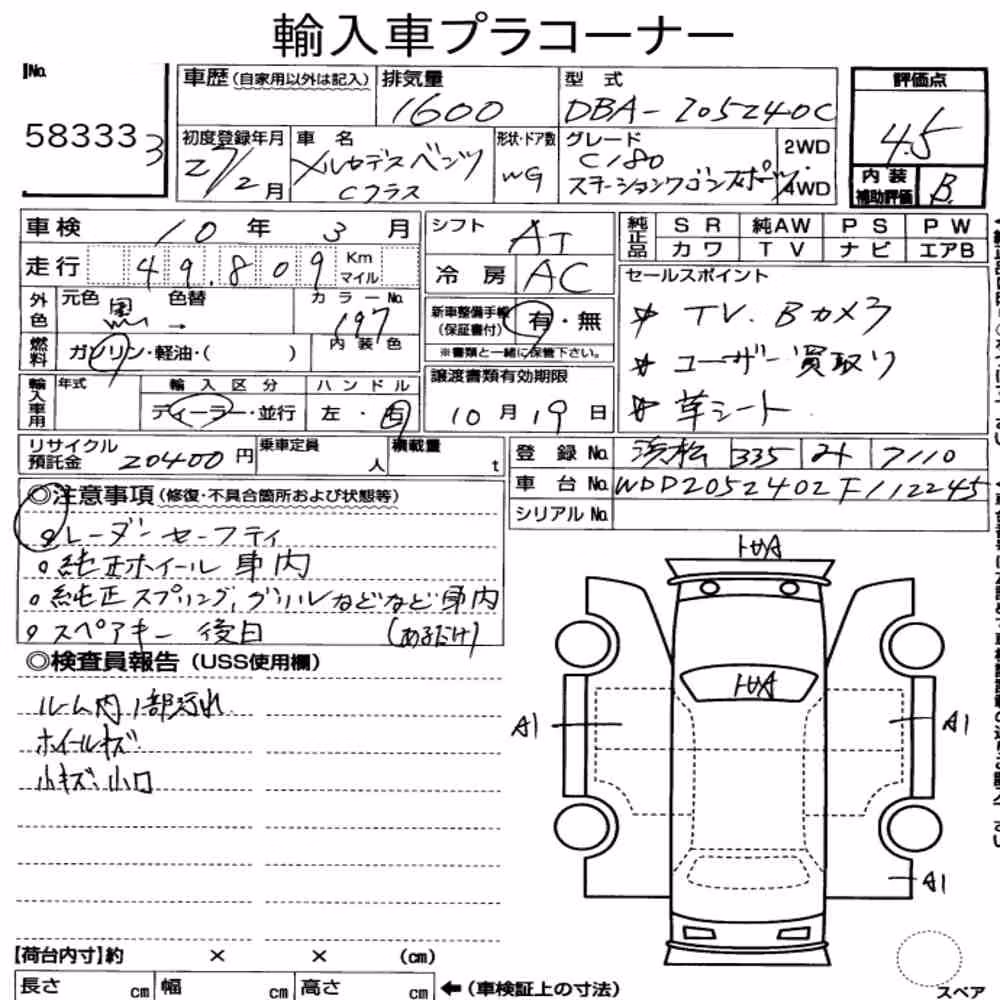 輸入車プラコーナー
No.
58333 3
車歴(自家用以外は記入)
排気量
1600
型 式
DBA-205240C
評価点
4.5
内装補助評価
B
初度登録年月
27/2月
車 名
メルセデスベンツ
Cクラス
形状・ドア数
WG
グレード
C180
ステーションワゴンスポーツ
2WD
・
4WD
車検 10年 3月
シフト AT
純正品
SR 純AW PS PW
カワ TV ナビ エアB
走行 49.809 Km マイル
冷房 AC
セールスポイント
* TV. Bカメラ
* ユーザー買取り
* 革シート
外色
元色 黒 色替 →
カラーNo. 197
内装色
新車整備手帳(保証書付) 有・無
※書類と一緒に保管下さい。
燃料 ガソリン・軽油・( )
輸入車用
年式
輸入区分
ディーラー・並行
ハンドル
左・右
譲渡書類有効期限
10月19日
リサイクル預託金 20400円
乗車定員 人
積載量 t
登録No. 浜松 335 7110
車台No. WDD2052402F112245
シリアルNo.
◎注意事項(修復・不具合箇所および状態等)
。レーダーセーフティ
。純正ホイール 車内
。純正スプリング、グリルなどなど車内
。スペアキー 後日 (あるだけ)
◎検査員報告(USS使用欄)
ルーム内1部汚れ
ホイールキズ
小キズ、小凹
トビA
トビA
A1
A1
A1
【荷台内寸】約 × × (cm)
長さ cm 幅 cm 高さ cm
←(車検証上の寸法)
スペア